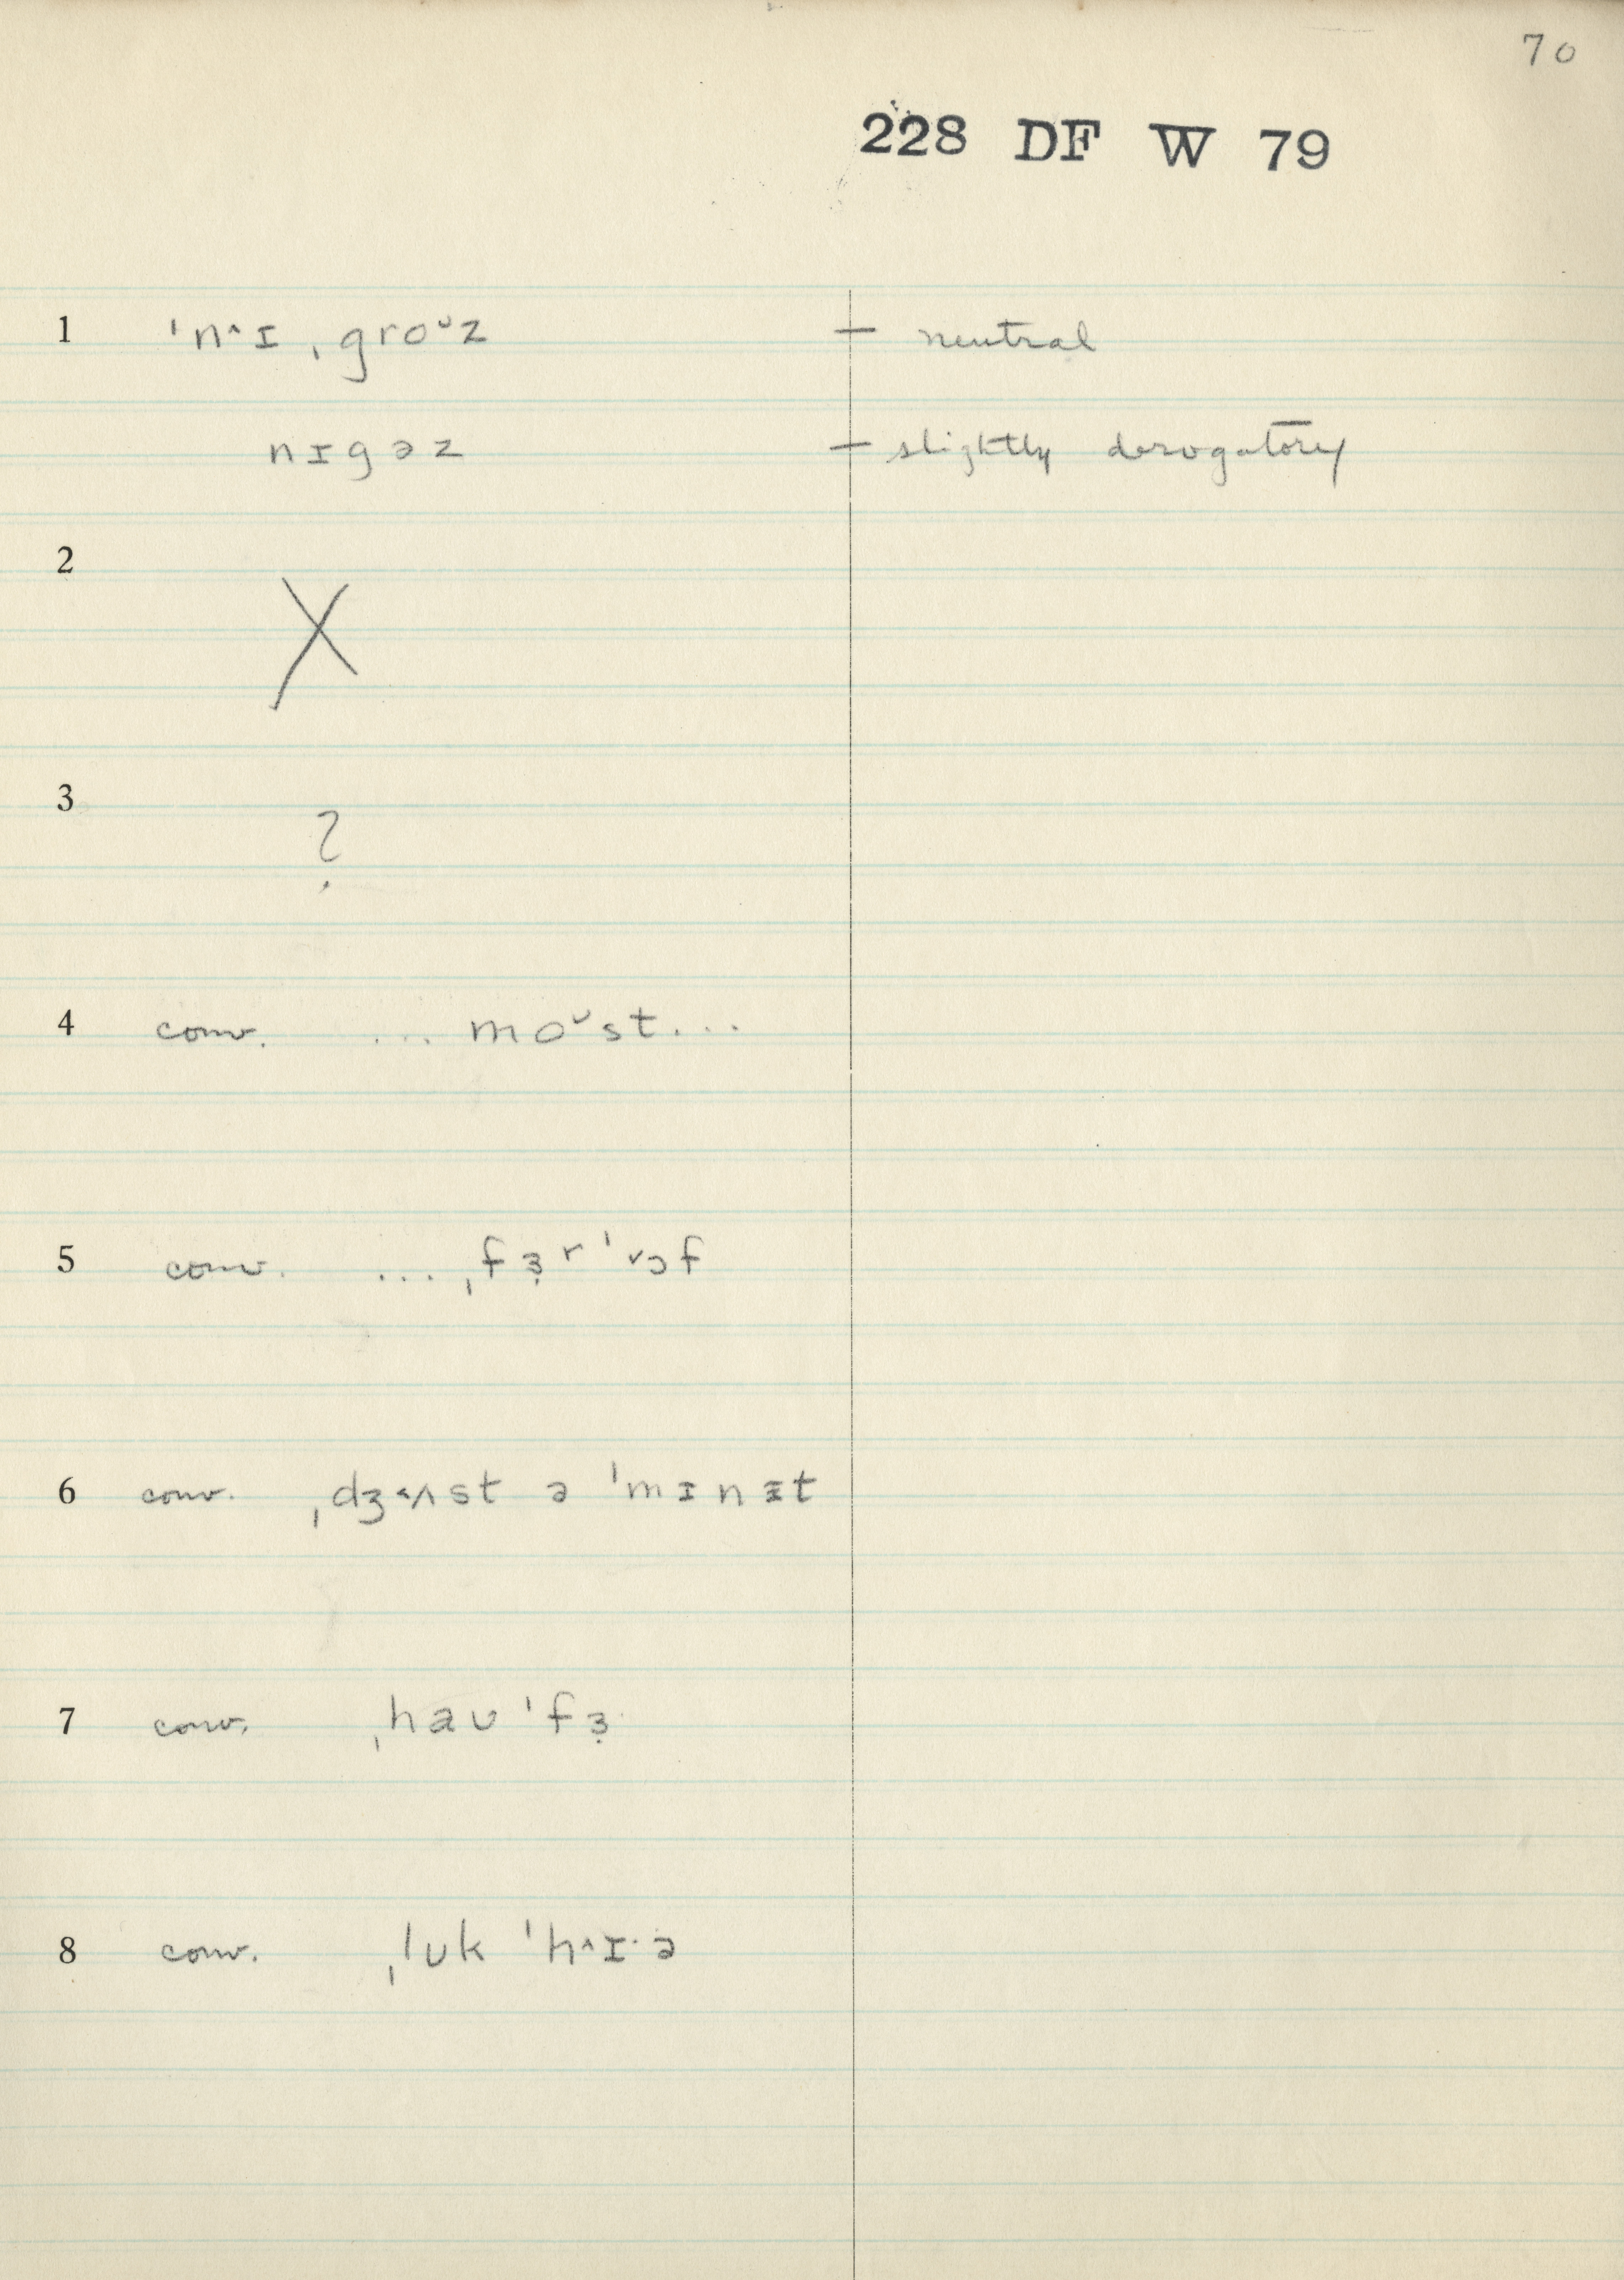 70
228 DF W 79
1 ˈn˄ɪˌgroᶷz — neutral
nɪgəz — slightly derogatory
2 X
3 ?
4 conv. ... moᶷst...
5 conv. ... ˌfɜ̣rˈ˅ɔf
6 conv. ˌdʒ˂ʌst ə ˈmɪnɪ̵t
7 conv. ˌhaʊ ˈfɜ̣
8 conv. ˌlʊk ˈh˄ɪ·ə